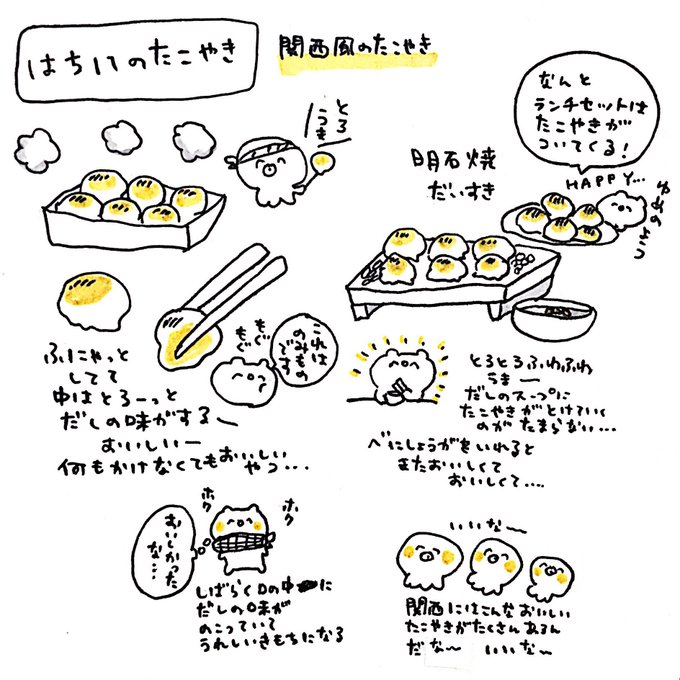 はち17のたこやき
関西風のたこやき
とろ
うま
なんと
ランチセットは
たこやきが
ついてくる!
HAPPY...
ゆめのよう
明石焼
だいすき
これは
のみもの
です
もぐ
もぐ
ふにゃっと
してて
中はとろーっと
だしの味がするー
おいしいー
何もかけなくてもおいしい
やつ...
とろとろふわふわ
うまー
だしのスープに
たこやきがとけていく
のがたまらない...
べにしょうがをいれると
またおいしくて
おいしくて....
ホク
ホク
おいしかった
な...
しばらく口の中に
だしの味が
のこっていて
うれしいきもちになる
いいな〜
関西にはこんなおいしい
たこやきがたくさんあるん
だな〜 いいな〜